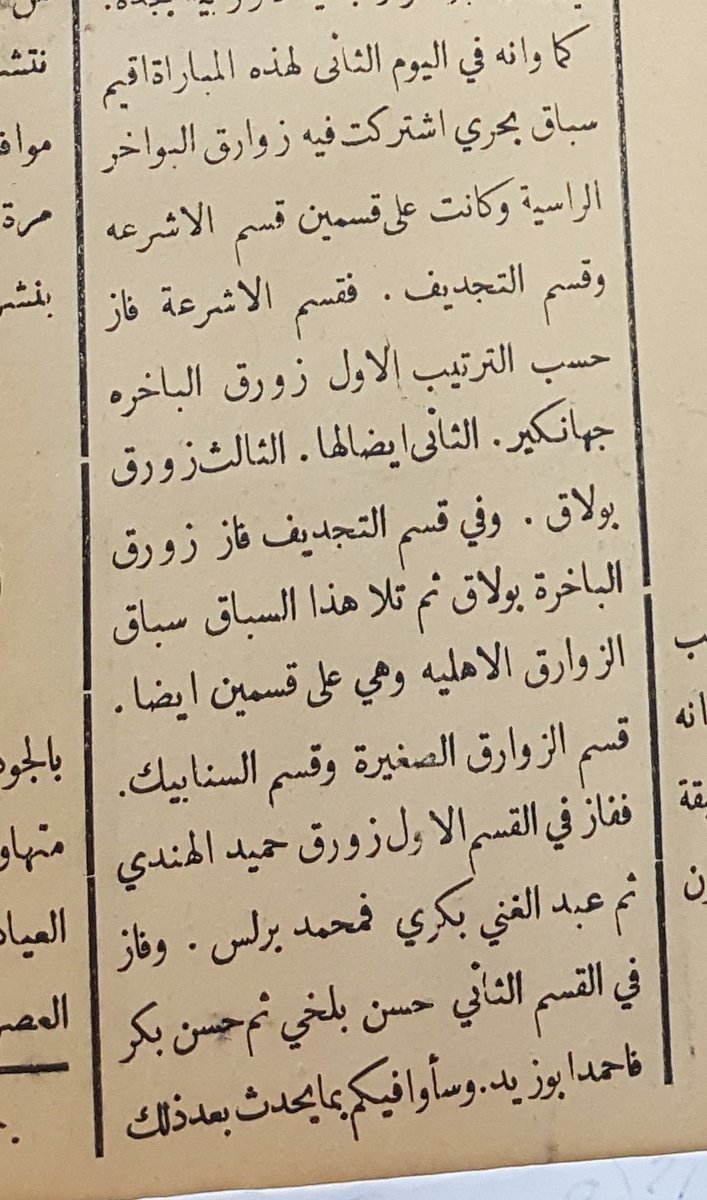 كما وانه في اليوم الثانى لهذه المباراة اقيم
سباق بحري اشتركت فيه زوارق البواخر
الراسية وكانت على قسمين قسم الاشرعه
وقسم التجديف . فقسم الاشرعة فاز
حسب الترتيب الاول زورق الباخره
جهانكير . الثانى ايضا لها . الثالث زورق
بولاق . وفي قسم التجديف فاز زورق
الباخرة بولاق ثم تلا هذا السباق سباق
الزوارق الاهليه وهي على قسمين ايضا .
قسم الزوارق الصغيرة وقسم السنابيك .
ففاز في القسم الاول زورق حميد الهندي
ثم عبد الغني بكري فمحمد برلس . وفاز
في القسم الثاني حسن بلخي ثم حسن بكر
فاحمد ابوزيد . وسأوافيكم بما يحدث بعد ذلك
نتش
مواف
مرة
بنشر
بالجود
متهاو
العياد
العصر
ب
انه
يقة
ون